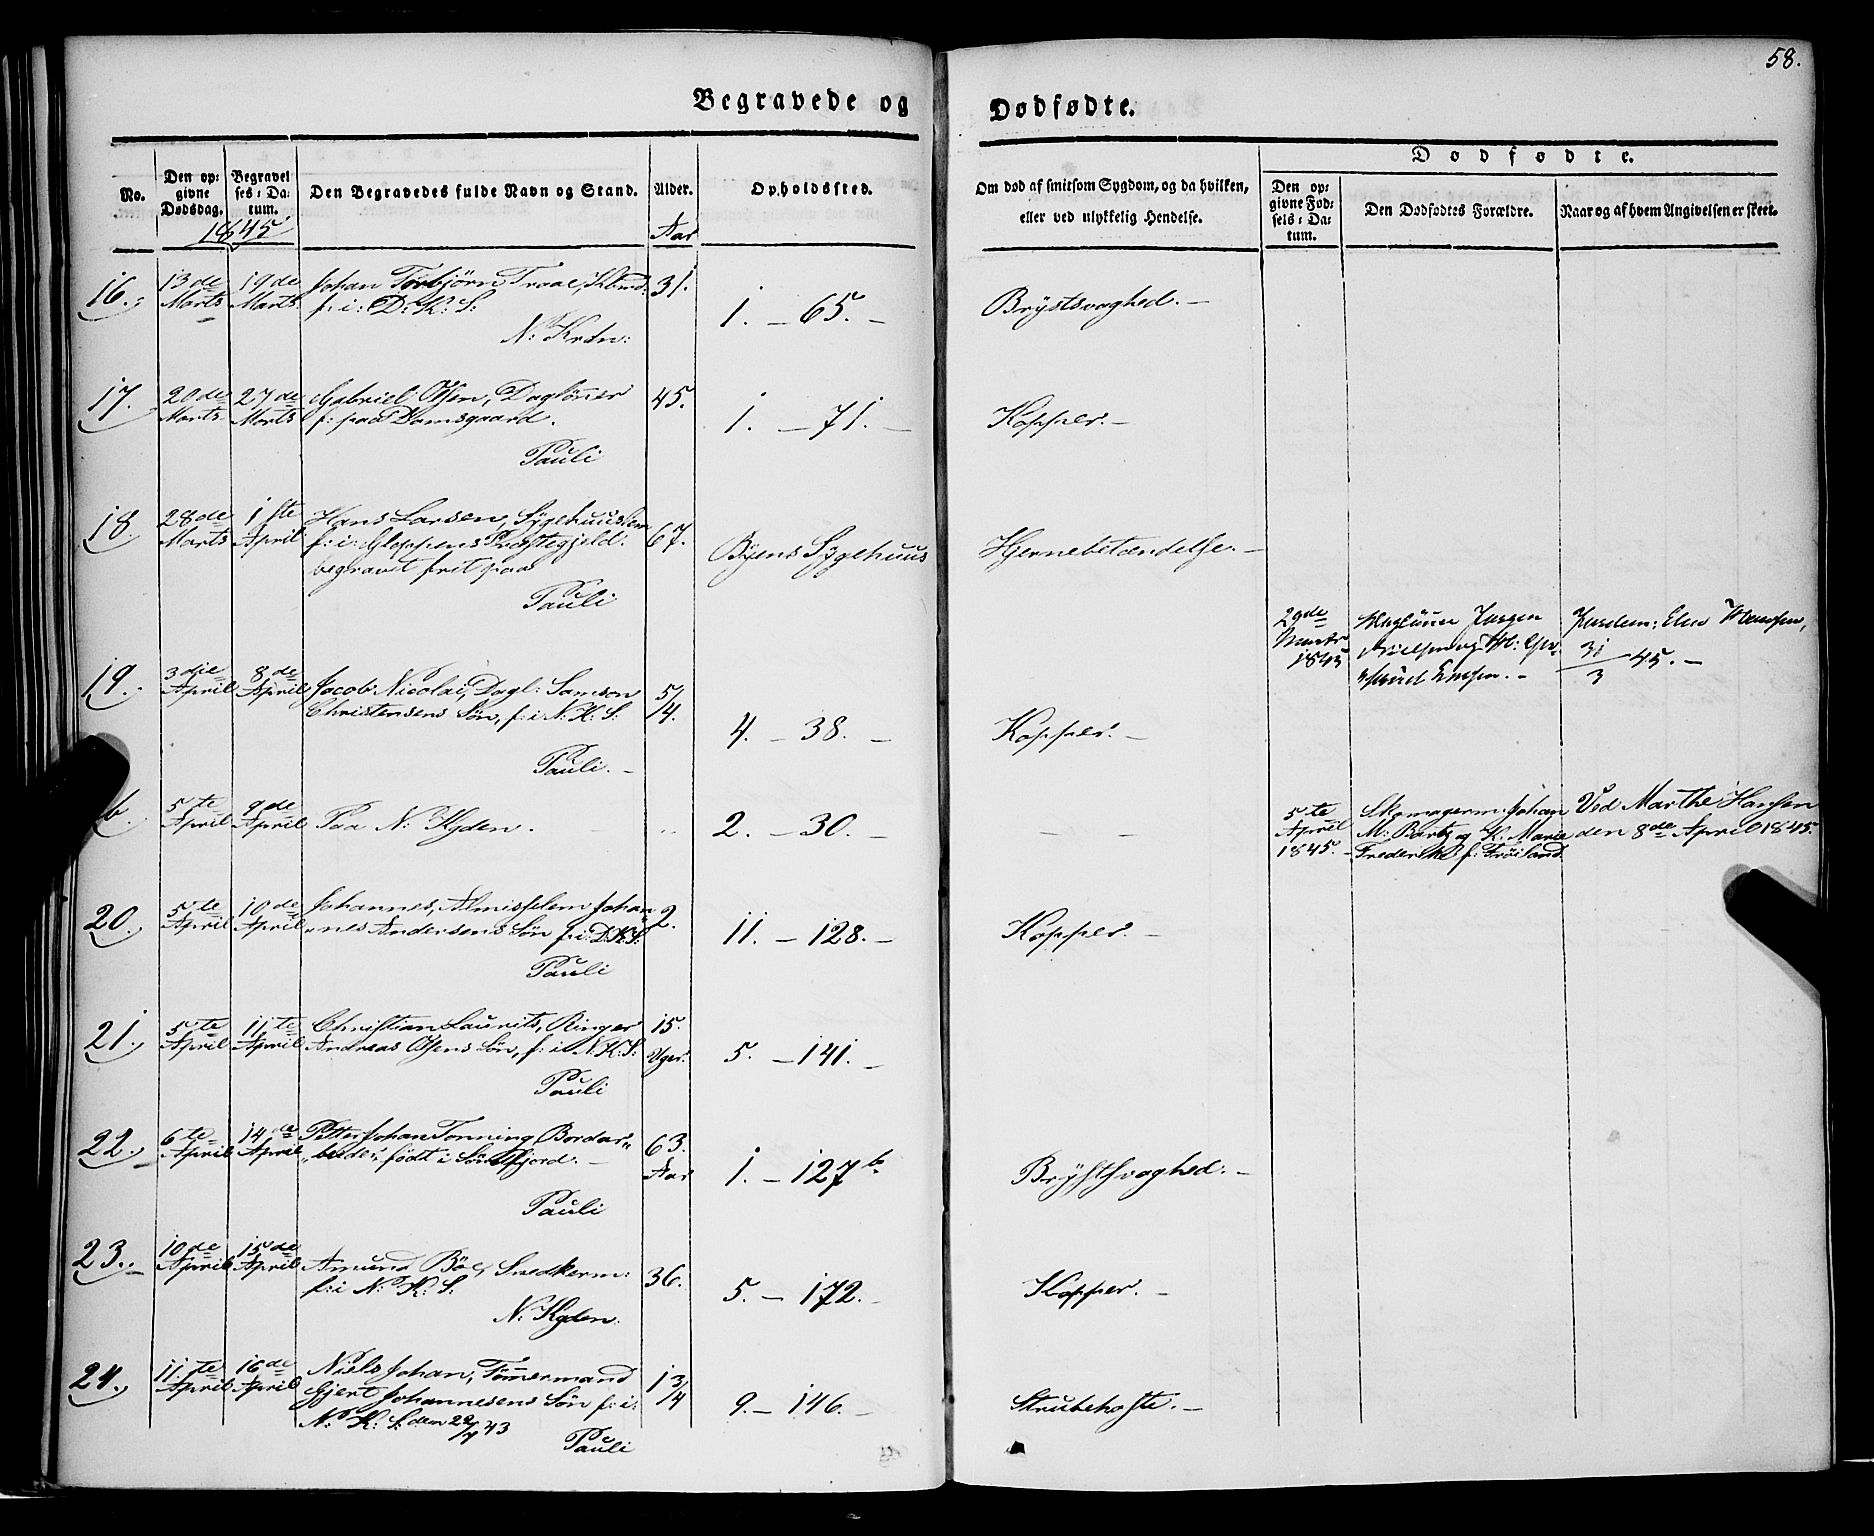 58.
Begravede og Dødfødte.
No.
Den opgivne Dødsdag.
Begravelses-Datum.
1845
Den Begravedes fulde Navn og Stand.
Alder.
Aar
Opholdssted.
Om død af smitsom Sygdom, og da hvilken,
eller ved ulykkelig Hendelse.
Dødfødte.
Den opgivne Fødsels-Datum.
Den Dødfødtes Forældre.
Naar og af hvem Angivelsen er skeet.
16. 13de Marts 19de Marts
Johan Torbjørn Traae, Kbmd: 31.
f: i: D: K: S:
N: Krdn:
1. – 65. – Brystsvaghed. –
17. 20de Marts 27de Marts
Gabriel Olsen, Daglönner 45.
f: paa Damsgaard.
Pauli
1. – 71. – Kopper. –
18 28de Marts 1ste April
Hans Larsen, Sygehuuslem 67.
f: i: Gloppens Præstegjeld.
begravet frit paa
Pauli
Byens Sygehuus Hjernebetændelse. –
29de Marts 1845
Jørgen
31/3 45. –
19. 3die April 8de April
Jacob Nicolai, Dagl: Samson 5/4.
Christensens Sön, f: i N: K: S:
Pauli. –
4. – 38. – Kopper. –
b. 5te April 9de April
Paa N: Kgden. 2. – 30. –
5te April 1845. –
Skomagerm: Johan
M: Bartz og K: Marie
Frederikke f: Fröiland.
Ved Marthe Hansen
den 8de April 1845.
20. 5te April 10de April
Johannes, Almisselem Johan- 2.
nes Andersens Sön f: i D: K: S:
Pauli
11. – 128. – Kopper. –
21. 5te April 11te April
Christian Laurits, Ringer 15. Uger.
Andreas Olsens Sön, f: i N: K: S:
Pauli
5. – 141. –
22. 6te April 14de April
Petter Johan Tonning, Bordar- 63. Aar
beider, födt i Söndfjord. –
Pauli
1. – 127b Brystsvaghed. –
23. 10de April 15de April
Amund Böe, Snedkerm: 36.
f: i N: K: S:
N: Kgden.
5. – 172. – Kopper. –
24. 11te April 16de April
Niels Johan, Tömmermand 13/4
Gjert Johannesens Sön f: i:
N: K: S: den 22/7 43
Pauli
9. – 146. – Strubehoste. –